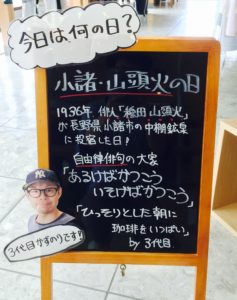 今日は何の日?
小諸・山頭火の日
1936年 俳人「種田山頭火」
が長野県小諸市の中棚鉱泉
に投宿した日!
自由律俳句の大家
「あるけばかつこう
いそげばかつこう」
「ひっそりとした朝に
珈琲をいっぱい」
by 3代目
3代目かずのりです!